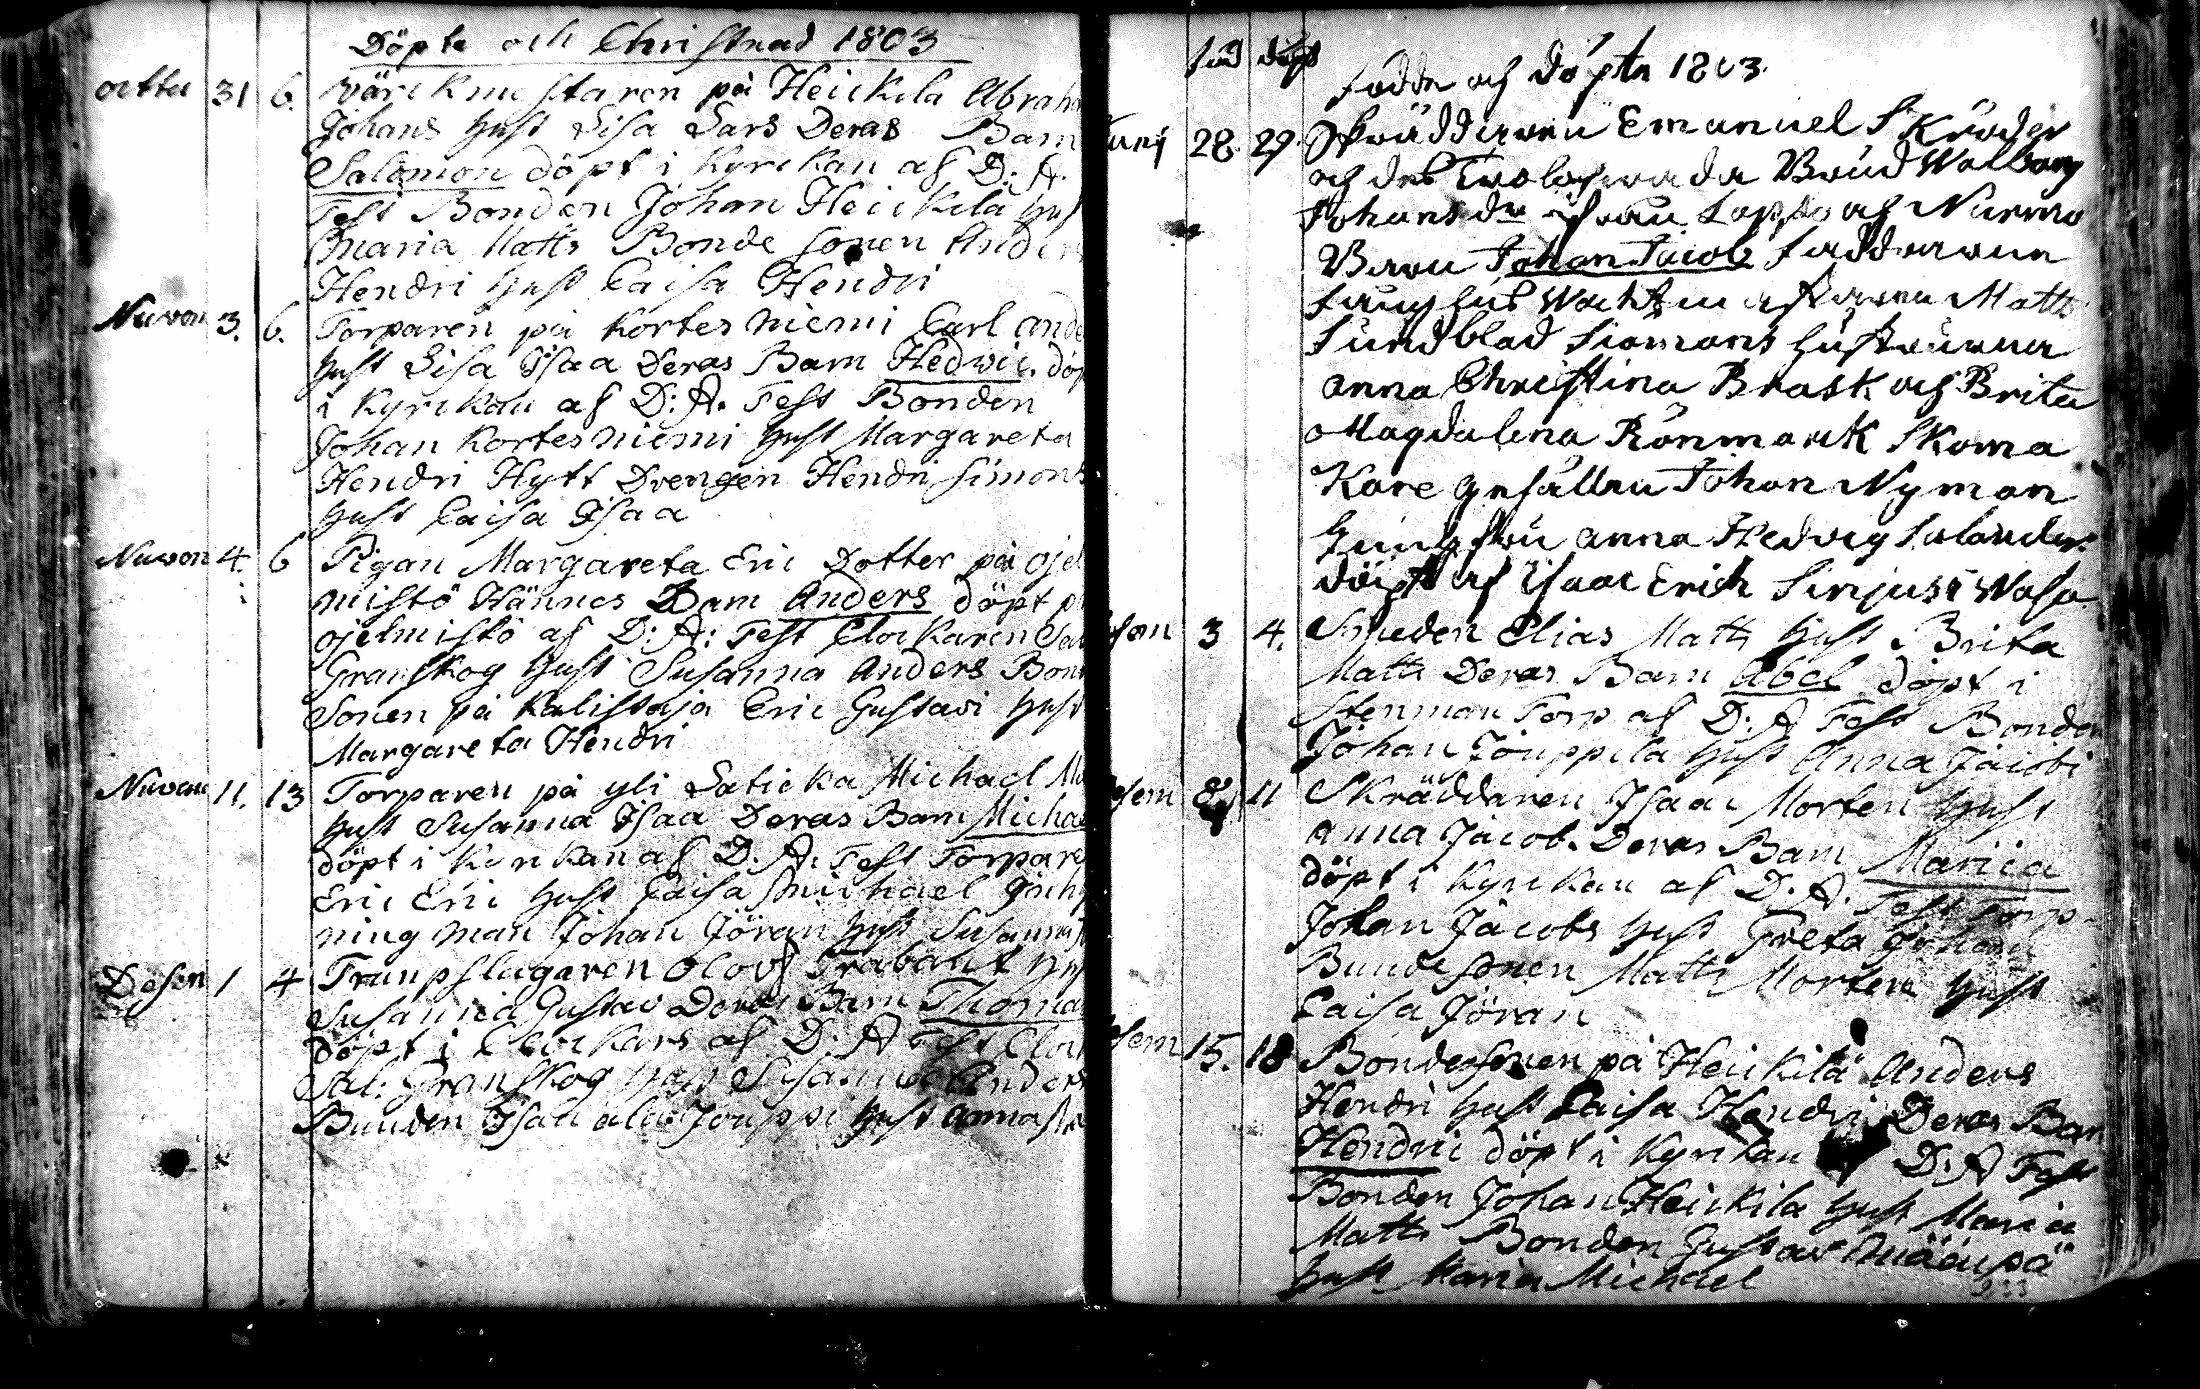 Döpte och Christnad 1803
octtu 31 6. värckmestaren på Heickila Abraha
Johans hust Lisa Lars Deras Barn
Salomon döpt i Kyrckan af D: A.
Test Bonden Johan Heickila hust
Maria Matts Bonde sonen Anders
Hendri hust Caisa Hendri
Nuvem 3. 6. Torparen på Kortes niemi Carl ande
hust Lisa Isaa Deras Barn Hedwic döp
i Kyrckan af D: A. Test Bonden
Johan Kortesniemi hust Margareta
Hendri Hytt Drengen Hendri Simons
hust Caisa Isaa
Nuvem 4. 6 Pigan Margareta Eric Dotter på ojel
mistö Hännes Barn Anders döpt p
ojelmistö af D: A: Test Clockaren Sal
Granskog hust Susanna Anders Bon
Sonen på Kalistaja Eric Gustavi hust
Margareta Hendri
Nuvem 11. 13 Torparen på yli Laticka Michael Ma
hust Susanna Isaa Deras Barn Michae
döpt i Kyrckan af D. A: Test Torpare
Eric Eric hust Caisa Michael
ning man Johan Jöran hust Susanna
Desem 1 4 Trunpslagaren Olov Trabant hus
Susanna Gustav Deras Barn Thoma
döpt i Clockars af D. A Test Cloc
Sal: Granskog hust Susanna Anders
Bunden Isac ala Jouppi hust Anna
född döpt
födde och döpta 1803.
Junij 28. 29. Skräddaren Emanuel Skröder
och des Trolofwada Brud Walborg
Johans dr ifrån Loppo af Nurmo
Barn Johan Jacob faddrarne
fånghus Wachtmästaren Matts
Sundblad Siomans hustrurna
anna Christina Brask och Brita
Magdalena Rönmark Skoma
Kare gesällen Johan Nyman
Jungfru anna Hedvig Salander
döpt af Isaac Erich Sirjus i Wasa
esem 3 4. Smeden Elias Matts hust Brita
Matts Deras Barn Abel döpt i
Stenman Torp af D. A Test Bonden
Johan Jouppila hust Anna Jacobi
esem 8 11 Skräddaren Isaac Morten hust
anna Jacob. Deras Barn Mariia
döpt i Kyrckan af D. A. Test Torp
Johan Jacobs hust Greta Johan
Bunde sonen Matts Morten hust
Caisa Jöran
esem 15. 18 Bondesonen på Heickilä Anders
Hendri hust Caisa Hendri Deras Bar
Hendric döpt i Kyrckan af D: A Test
Bonden Johan Heickila hust Maria
Matts Bonden Gustav Mäenpä
hust Maria Michael